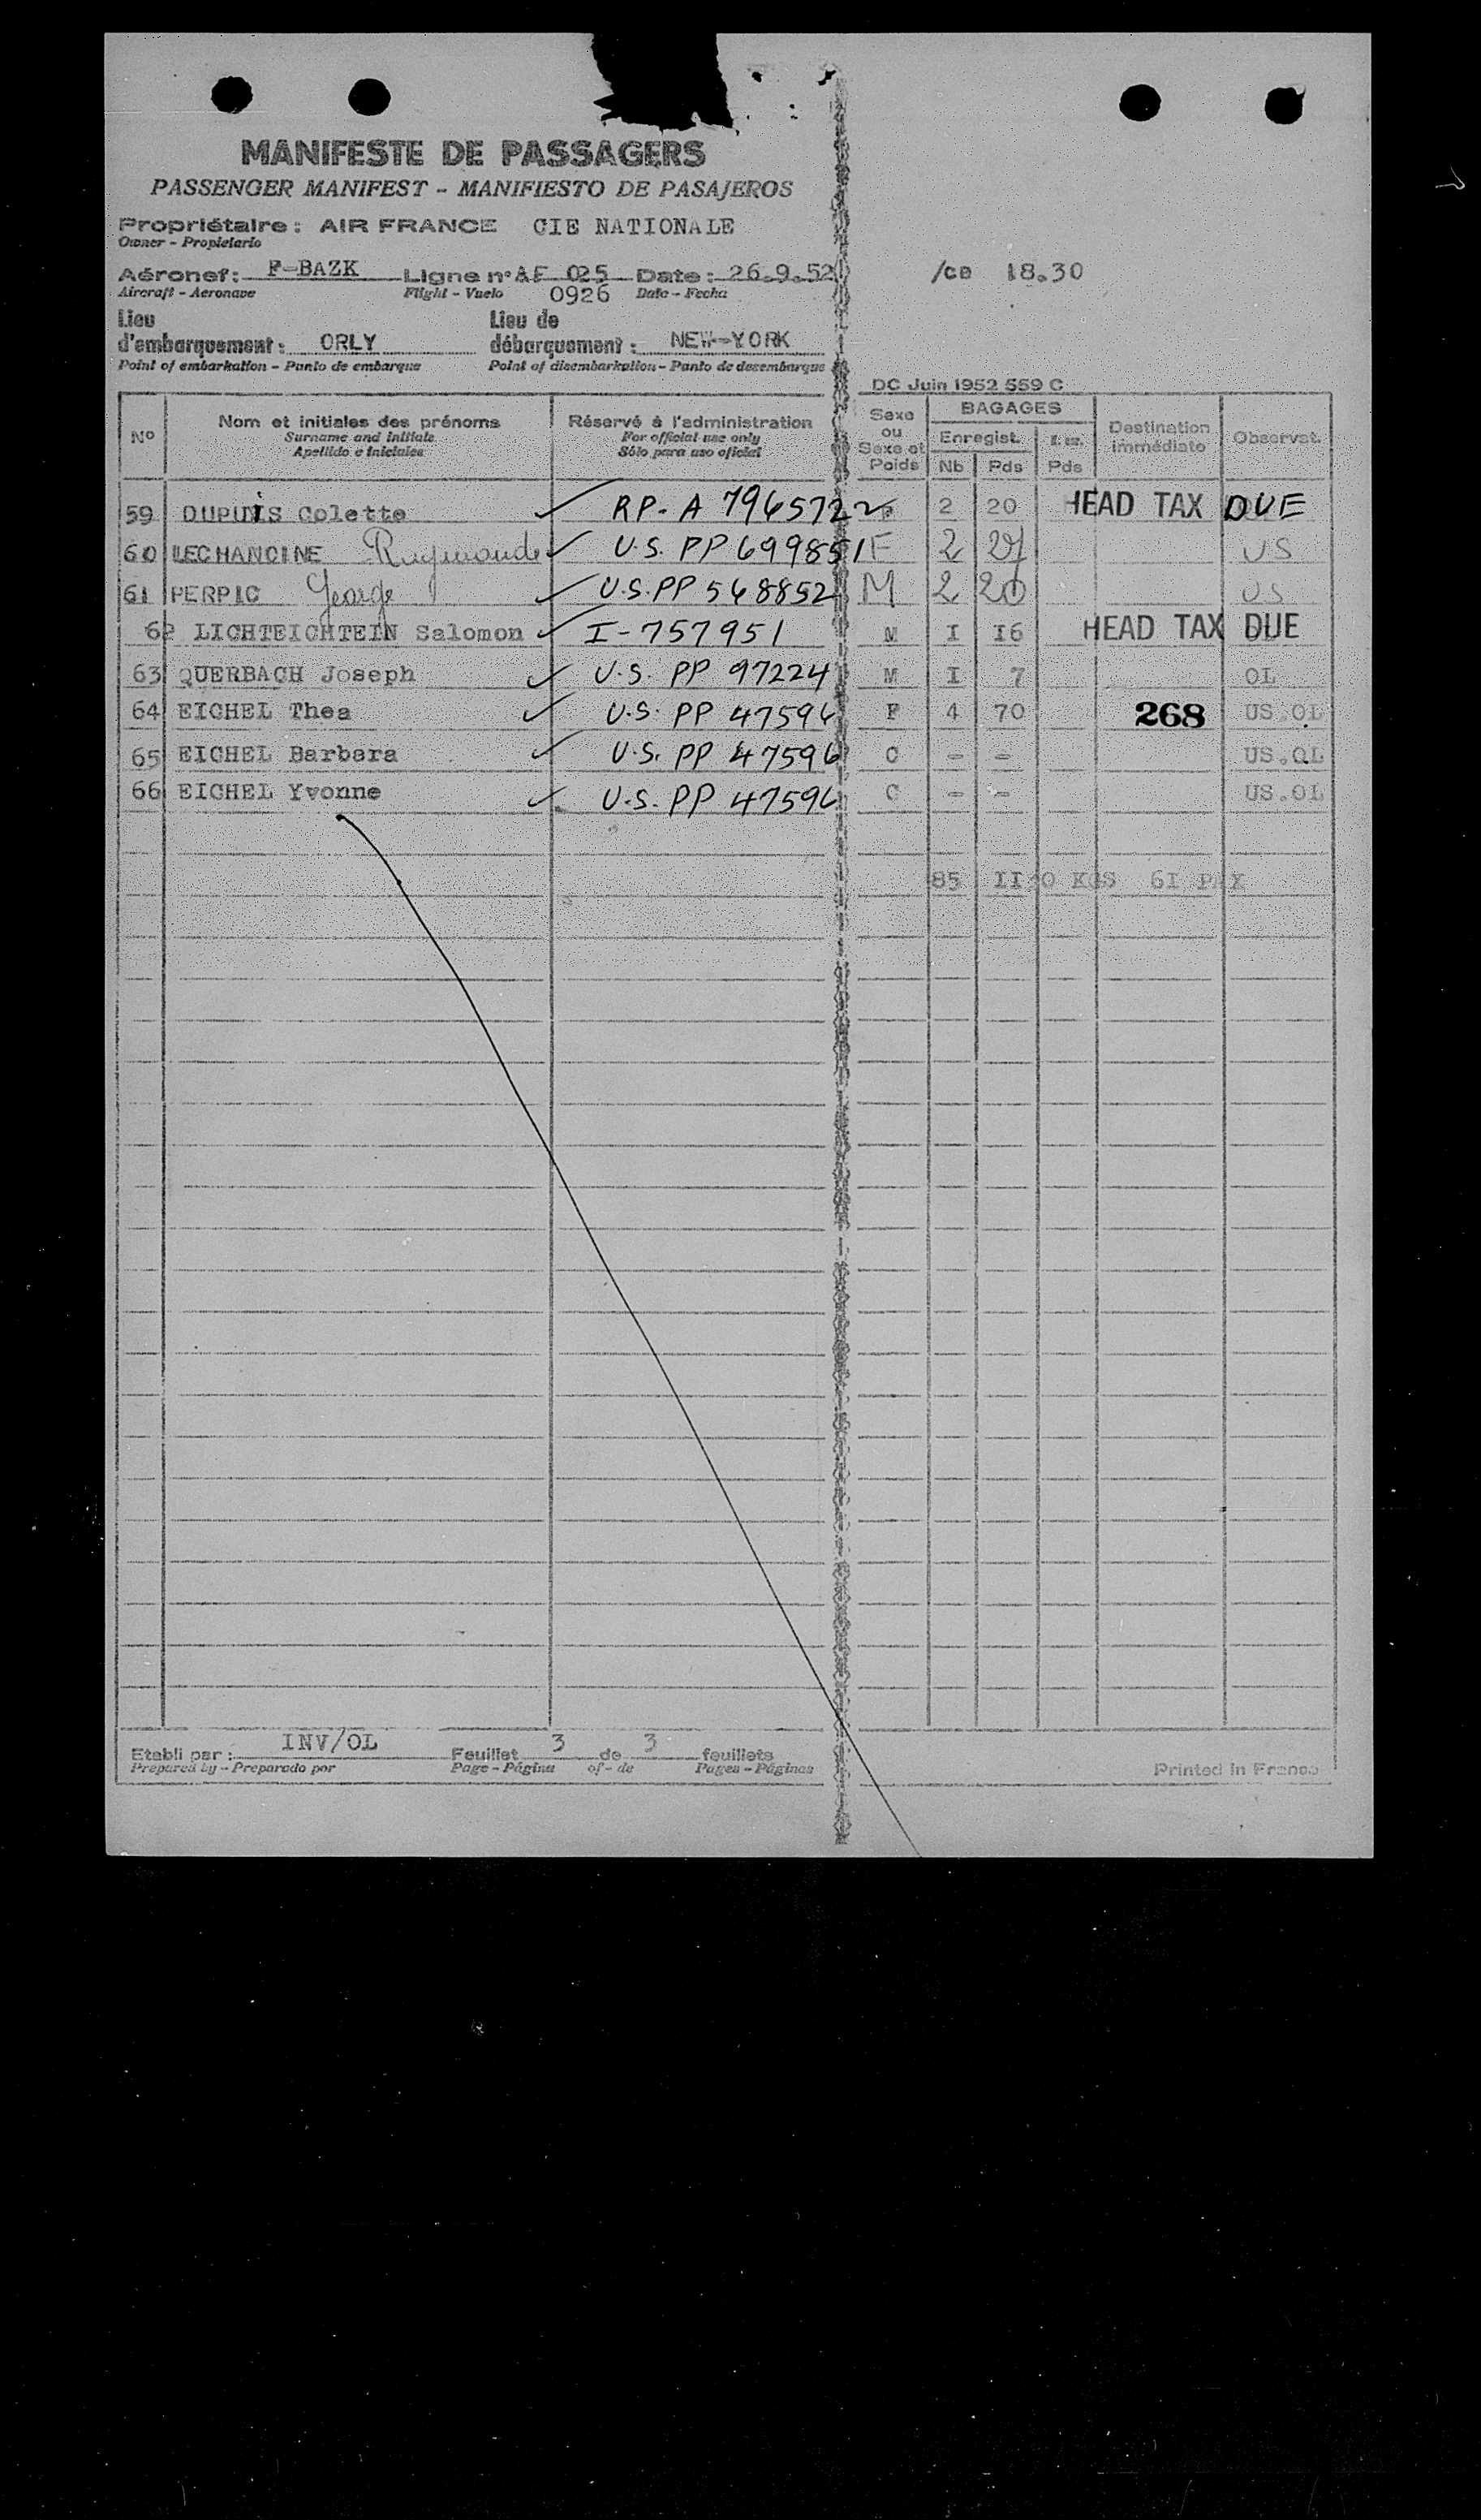 MANIFESTE DE PASSAGERS
PASSENGER MANIFEST - MANIFIESTO DE PASAJEROS
Propriétaire : AIR FRANCE CIE NATIONALE
Owner - Propietario
Aéronef : F-BAZK Ligne n° AF 025 Date : 26.9.52 /ce 18.30
Aircraft - Aeronave Flight - Vuelo 0926 Date - Fecha
Lieu d'embarquement : ORLY Lieu de débarquement : NEW-YORK
Point of embarkation - Punto de embarque Point of disembarkation - Punto de desembarque
DC Juin 1952 559 C
N° Nom et initiales des prénoms Réservé à l'administration Sexe ou Sexe et Poids BAGAGES Destination immédiate Observat.
Surname and initials For official use only Enregist.
Apellido e iniciales Sólo para uso oficial Nb Pds Pds
59 DUPUIS Colette RP-A 7965722 F 2 20 HEAD TAX DUE
60 LECHANOINE Raymonde U.S. PP 699851 F 2 US
61 PERPIC George U.S. PP 568852 M 2 20 US
62 LICHTEICHTEIN Salomon I-757951 M I I6 HEAD TAX DUE
63 QUERBACH Joseph U.S. PP 97224 M I 7 OL
64 EICHEL Thea U.S. PP 47596 F 4 70 268 US.OL
65 EICHEL Barbara U.S. PP 47596 C - - US.OL
66 EICHEL Yvonne U.S. PP 47596 C - - US.OL
85 KGS 6I PAX
Etabli par : INV/OL Feuillet 3 de 3 feuillets
Prepared by - Preparado por Page - Página of - de Pages - Páginas
Printed in France